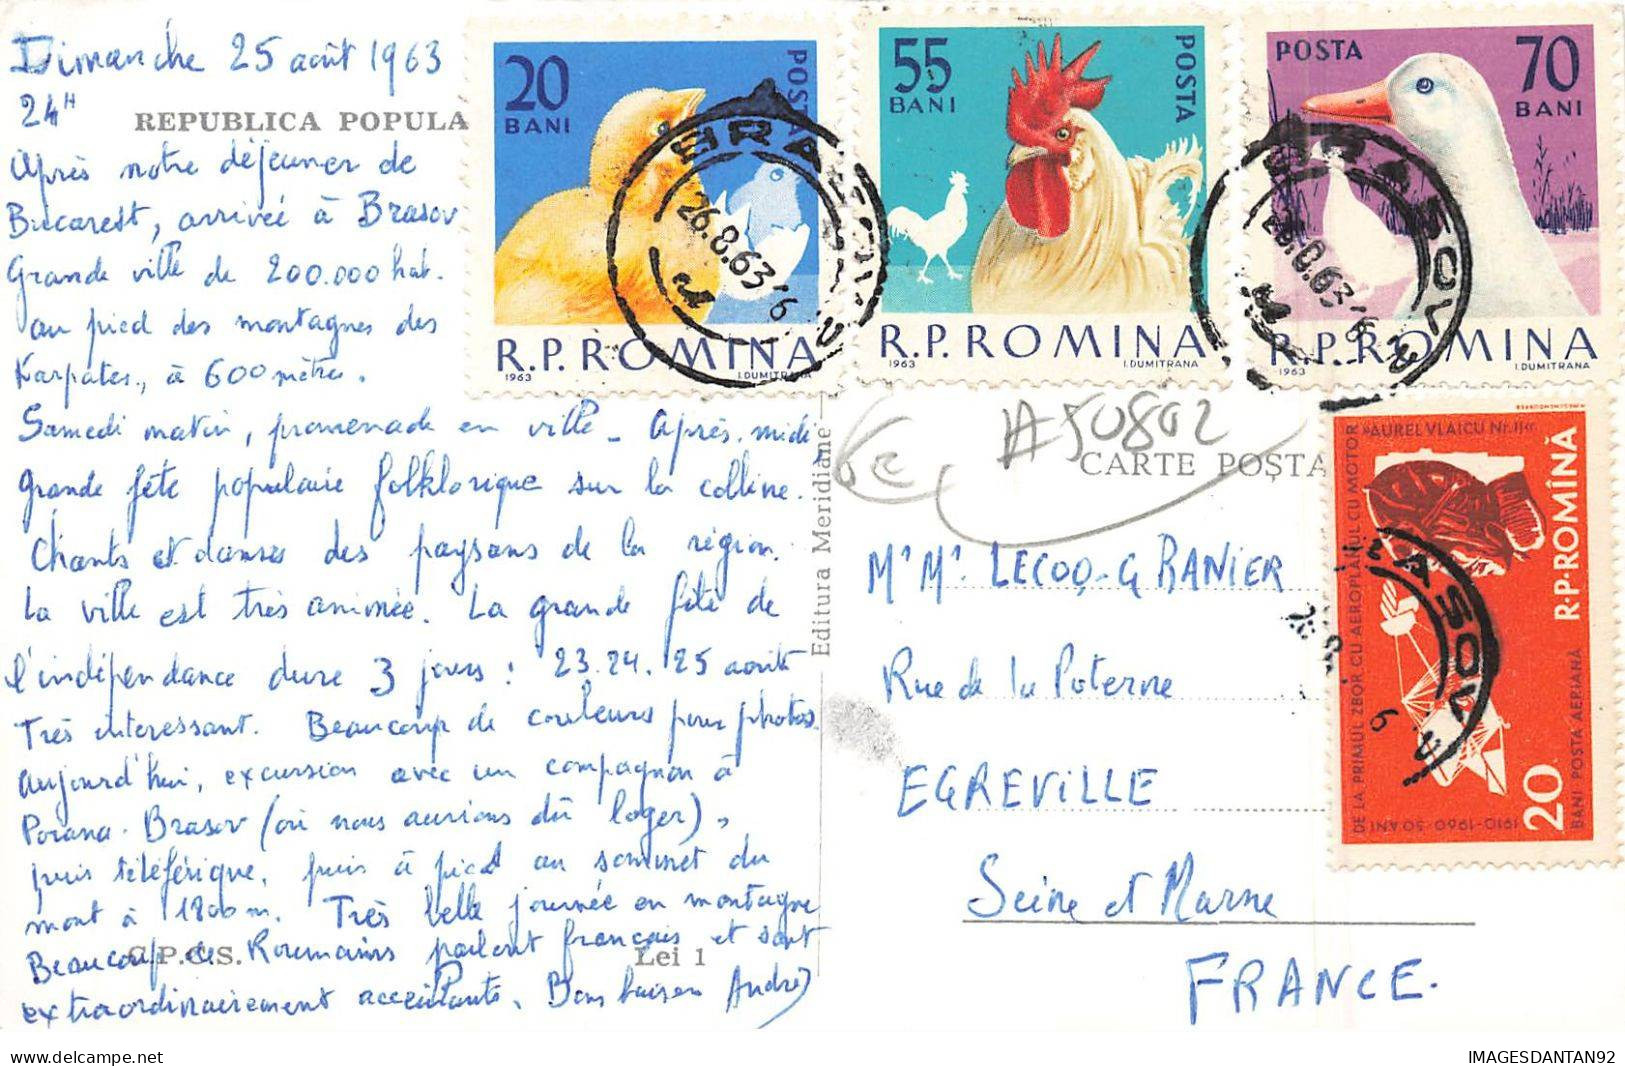 Dimanche 25 août 1963
24H
REPUBLICA POPULA
Après notre déjeuner de
Bucarest, arrivée à Brasov
Grande ville de 200.000 hab.
au pied des montagnes des
Karpates, à 600 mètres.
Samedi matin, promenade en ville - Après-midi
grande fête populaire folklorique sur la colline.
Chants et danses des paysans de la région.
La ville est très animée. La grande fête de
l'indépendance dure 3 jours : 23.24.25 août
Très intéressant. Beaucoup de couleurs pour photos.
Aujourd'hui, excursion avec un compagnon à
Poiana-Brasov (où nous aurions dû loger),
puis téléférique, puis à pied au sommet du
mont à 1800 m. Très belle journée en montagne
Beaucoup de Roumains parlent français et sont
extraordinairement accueillants. Bons baisers André
C.P.C.S.
Lei 1
Editura Meridiane
20
BANI
POSTA
R.P.ROMINA
1963
I.DUMITRANA
BRASOV
26.8.63
55
BANI
POSTA
R.P.ROMINA
1963
I.DUMITRANA
POSTA
70
BANI
R.P.ROMINA
1963
I.DUMITRANA
BRASOV
A50802
CARTE POȘTA
Mr Me LECOQ-GRANIER
Rue de la Poterne
EGREVILLE
Seine et Marne
FRANCE.
»AUREL VLAICU Nr. II«
DE LA PRIMUL ZBOR CU AEROPLANUL CU MOTOR
1910-1960-50 ANI
R·P·ROMÎNĂ
20
BANI POSTA AERIANĂ
delcampe.net
IMAGESDANTAN92